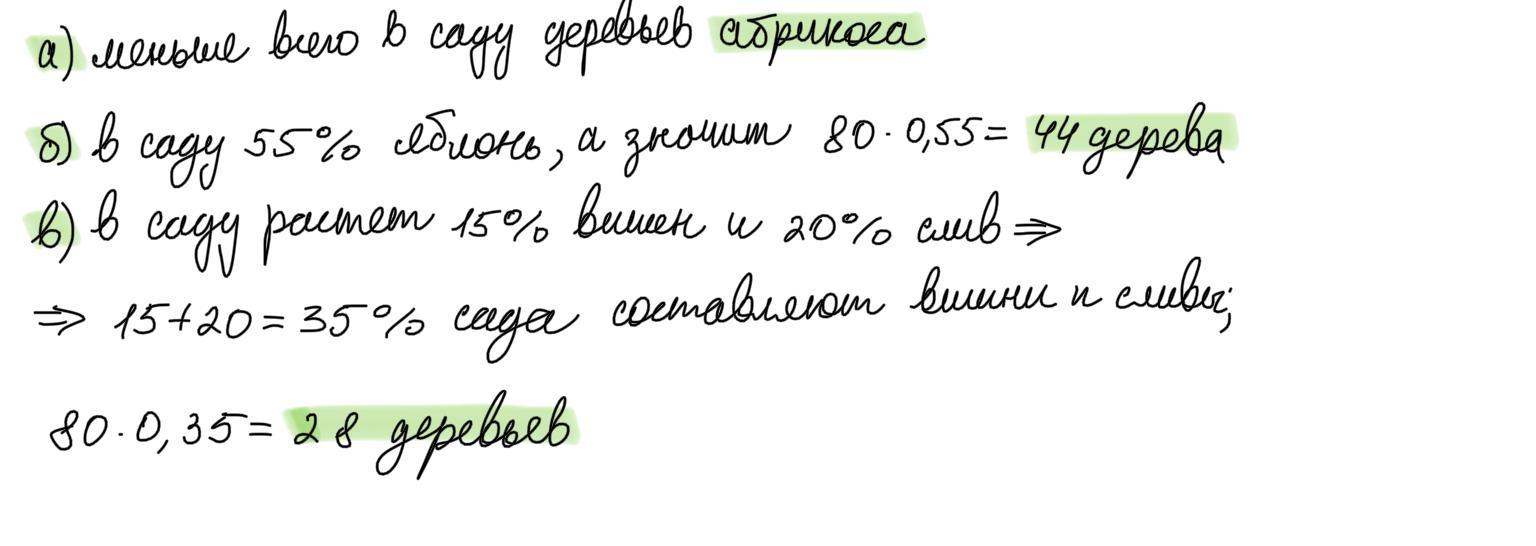 а) меньше всего в саду деревьев абрикоса
б) в саду 55% яблонь, а значит 80 · 0,55 = 44 дерева
в) в саду растет 15% вишен и 20% слив ⇒
⇒ 15+20 = 35% сада составляют вишни и сливы;
80 · 0,35 = 28 деревьев